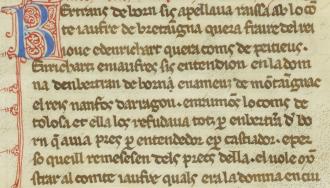 Bertrans de born sis apellaua rassa ab locō
te iaufre de bretaingna quera fraire del rei
ioue edenrichart quera coms de peiteus.
Enrichartz en iaufres sis entendion en la dom
na den bertran de born et en ameur de mōtaingnac
el reis nanfos darragon. en raimōs lo coms de
tolosa et ella los refudaua totz per en bertrā d' bo
rn qe auia pres per entendedor et per castiador. e per
so queill remasesen dels precs della. el uole mo
strar al comte iaufre quals era la domna en cui